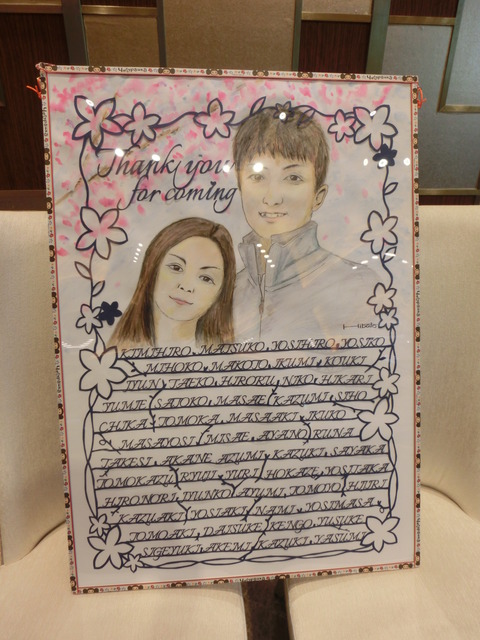 Thank you
for coming
KIMIHIRO MATSUKO YOSIHIRO YOSIKO
MIHOKO MAKOTO IKUMI KOUKI
IYUN TAEKO HIROKU NIKO HIKARI
YUMIE SATOKO MASAE KAZUMI SIHO
CHIKA TOMOKA MASAAKI IKUKO
MASAYOSI MISAE AYANO RUNA
TAKESI AKANE AZUMI KAZUKI SAYAKA
TOMOKAZU RYUJI YURI HOKAZE YOSITAKA
HIRONORI IYUNKO AYUMI TOMOYO HIJIRI
KAZUAKI YOSIAKI NAMI YOSIMASA
TOMOAKI DAISUKE KENGO YUSUKE
SIGEYUKI AKEMI KAZUKI YASUMI